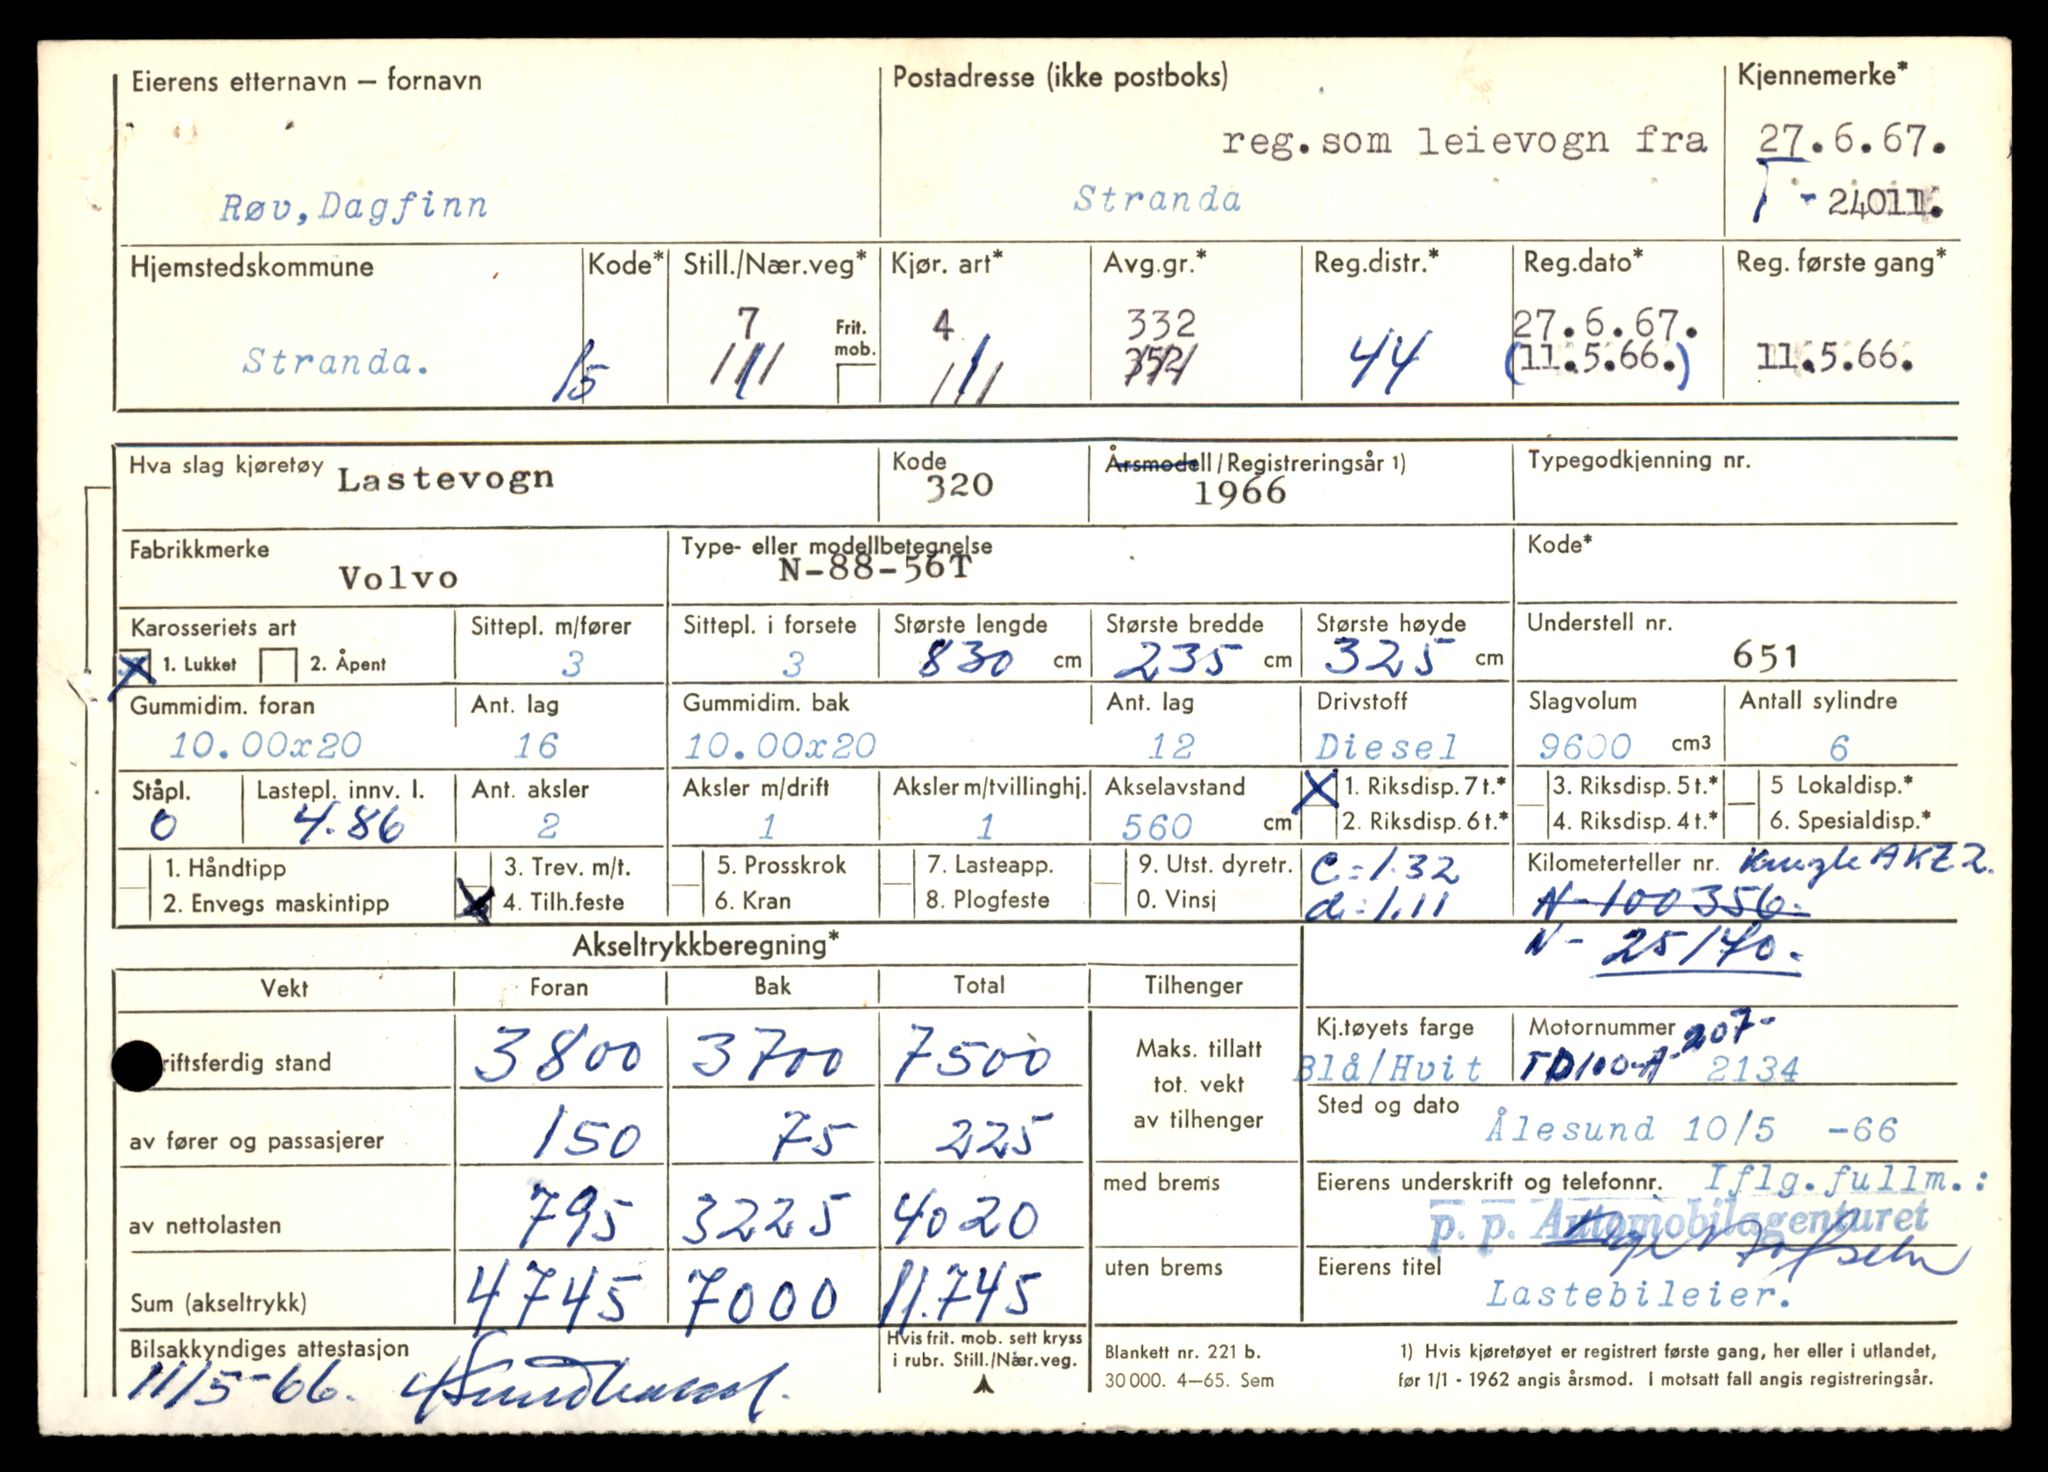 Eierens etternavn — fornavn
Postadresse (ikke postboks)
Kjennemerke*
reg.som leievogn fra
27.6.67.
Røv, Dagfinn
Stranda
T - 24011.
Hjemstedskommune
Kode*
Still./Nær.veg*
Kjør. art*
Avg.gr.*
Reg.distr.*
Reg.dato*
Reg. første gang*
7
Frit. mob.
4
332
27.6.67.
Stranda.
15
352
44
(11.5.66.)
11.5.66.
Hva slag kjøretøy
Lastevogn
Kode
320
Årsmodell/Registreringsår 1)
1966
Typegodkjenning nr.
Fabrikkmerke
Volvo
Type- eller modellbetegnelse
N-88-56T
Kode*
Karosseriets art
Sittepl. m/fører
Sittepl. i forsete
Største lengde
Største bredde
Største høyde
Understell nr.
X 1. Lukket
2. Åpent
3
3
830 cm
235 cm
325 cm
651
Gummidim. foran
Ant. lag
Gummidim. bak
Ant. lag
Drivstoff
Slagvolum
Antall sylindre
10.00x20
16
10.00x20
12
Diesel
9600 cm3
6
Ståpl.
Lastepl. innv. l.
Ant. aksler
Aksler m/drift
Aksler m/tvillinghj.
Akselavstand
X 1. Riksdisp. 7 t.*
3. Riksdisp. 5 t.*
5 Lokaldisp.*
0
4.86
2
1
1
560 cm
2. Riksdisp. 6 t.*
4. Riksdisp. 4 t.*
6. Spesialdisp.*
1. Håndtipp
3. Trev. m/t.
5. Prosskrok
7. Lasteapp.
9. Utst. dyretr.
C = 1.32
Kilometerteller nr. Kienzle AKZ 2.
2. Envegs maskintipp
X 4. Tilh.feste
6. Kran
8. Plogfeste
0. Vinsj
d = 1.11
N-100356.
N- 25170.
Akseltrykkberegning*
Vekt
Foran
Bak
Total
Tilhenger
riftsferdig stand
3800
3700
7500
Maks. tillatt
tot. vekt
av tilhenger
Kj.tøyets farge
Blå/Hvit
Motornummer
207-
TD100-A- 2134
av fører og passasjerer
150
75
225
Sted og dato
Ålesund 10/5 -66
av nettolasten
795
3225
4020
med brems
Eierens underskrift og telefonnr. Iflg.fullm.:
p. p. Automobilagenturet
Sum (akseltrykk)
4745
7000
11.745
uten brems
Eierens titel
Lastebileier.
Bilsakkyndiges attestasjon
11/5-66.
Hvis frit. mob. sett kryss
i rubr. Still./Nær.veg.
Blankett nr. 221 b.
30 000. 4—65. Sem
1) Hvis kjøretøyet er registrert første gang, her eller i utlandet,
før 1/1 - 1962 angis årsmod. I motsatt fall angis registreringsår.